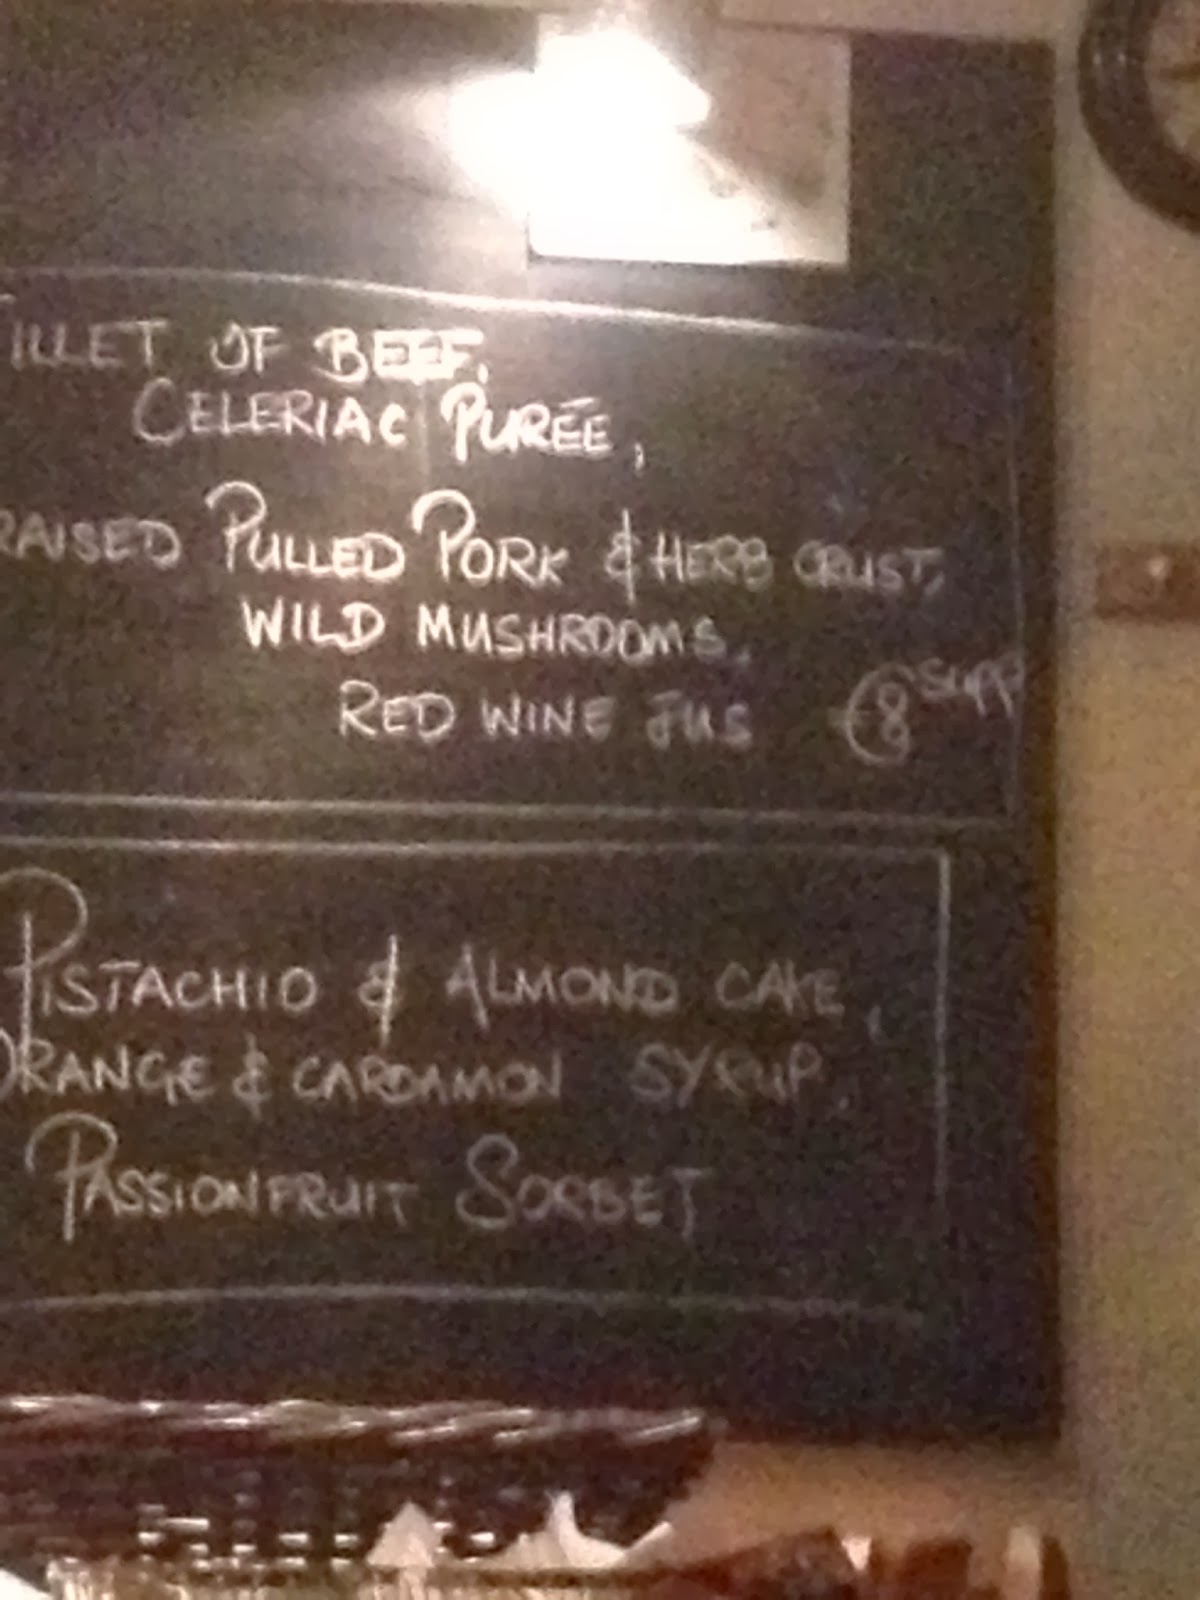 FILLET OF BEEF,
CELERIAC PURÉE,
RAISED PULLED PORK & HERB CRUST,
WILD MUSHROOMS,
RED WINE JUS €8 Supp
PISTACHIO & ALMOND CAKE,
ORANGE & CARDAMON SYRUP,
PASSIONFRUIT SORBET